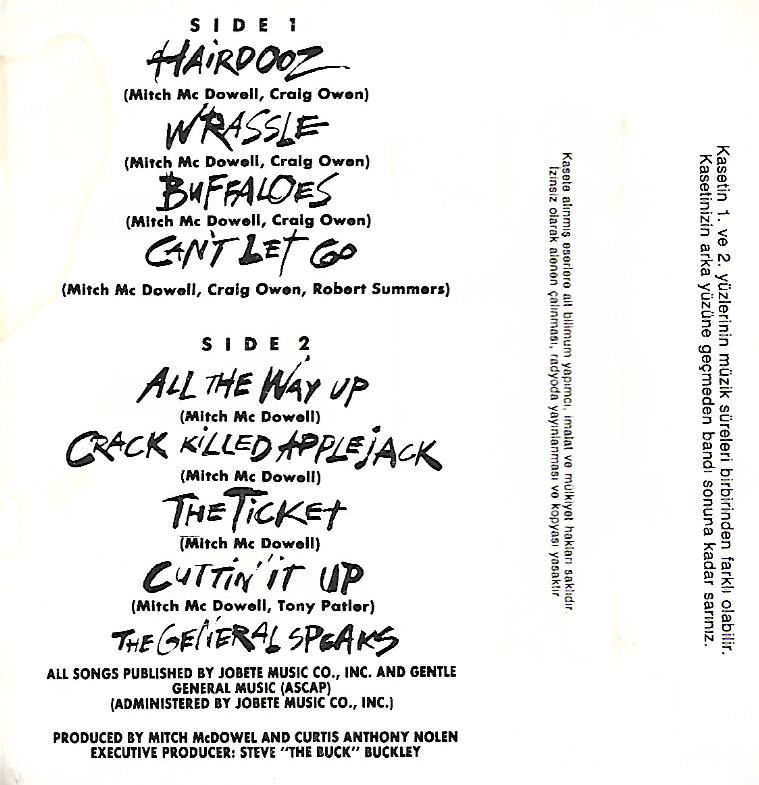 SIDE 1
HAIRDOOZ
(Mitch Mc Dowell, Craig Owen)
WRASSLE
(Mitch Mc Dowell, Craig Owen)
BUFFALOES
(Mitch Mc Dowell, Craig Owen)
CAN'T LET GO
(Mitch Mc Dowell, Craig Owen, Robert Summers)
SIDE 2
ALL THE WAY UP
(Mitch Mc Dowell)
CRACK KILLED APPLEJACK
(Mitch Mc Dowell)
THE TICKET
(Mitch Mc Dowell)
CUTTIN' IT UP
(Mitch Mc Dowell, Tony Patler)
THE GENERAL SPEAKS
ALL SONGS PUBLISHED BY JOBETE MUSIC CO., INC. AND GENTLE
GENERAL MUSIC (ASCAP)
(ADMINISTERED BY JOBETE MUSIC CO., INC.)
PRODUCED BY MITCH McDOWEL AND CURTIS ANTHONY NOLEN
EXECUTIVE PRODUCER: STEVE "THE BUCK" BUCKLEY
Kasete alınmış eserlere ait bilimum yapımcı, imalat ve mülkiyet hakları saklıdır.
İzinsiz olarak alenen çalınması, radyoda yayınlanması ve kopyası yasaktır
Kasetin 1. ve 2. yüzlerinin müzik süreleri birbirinden farklı olabilir.
Kasetinizin arka yüzüne geçmeden bandı sonuna kadar sarınız.